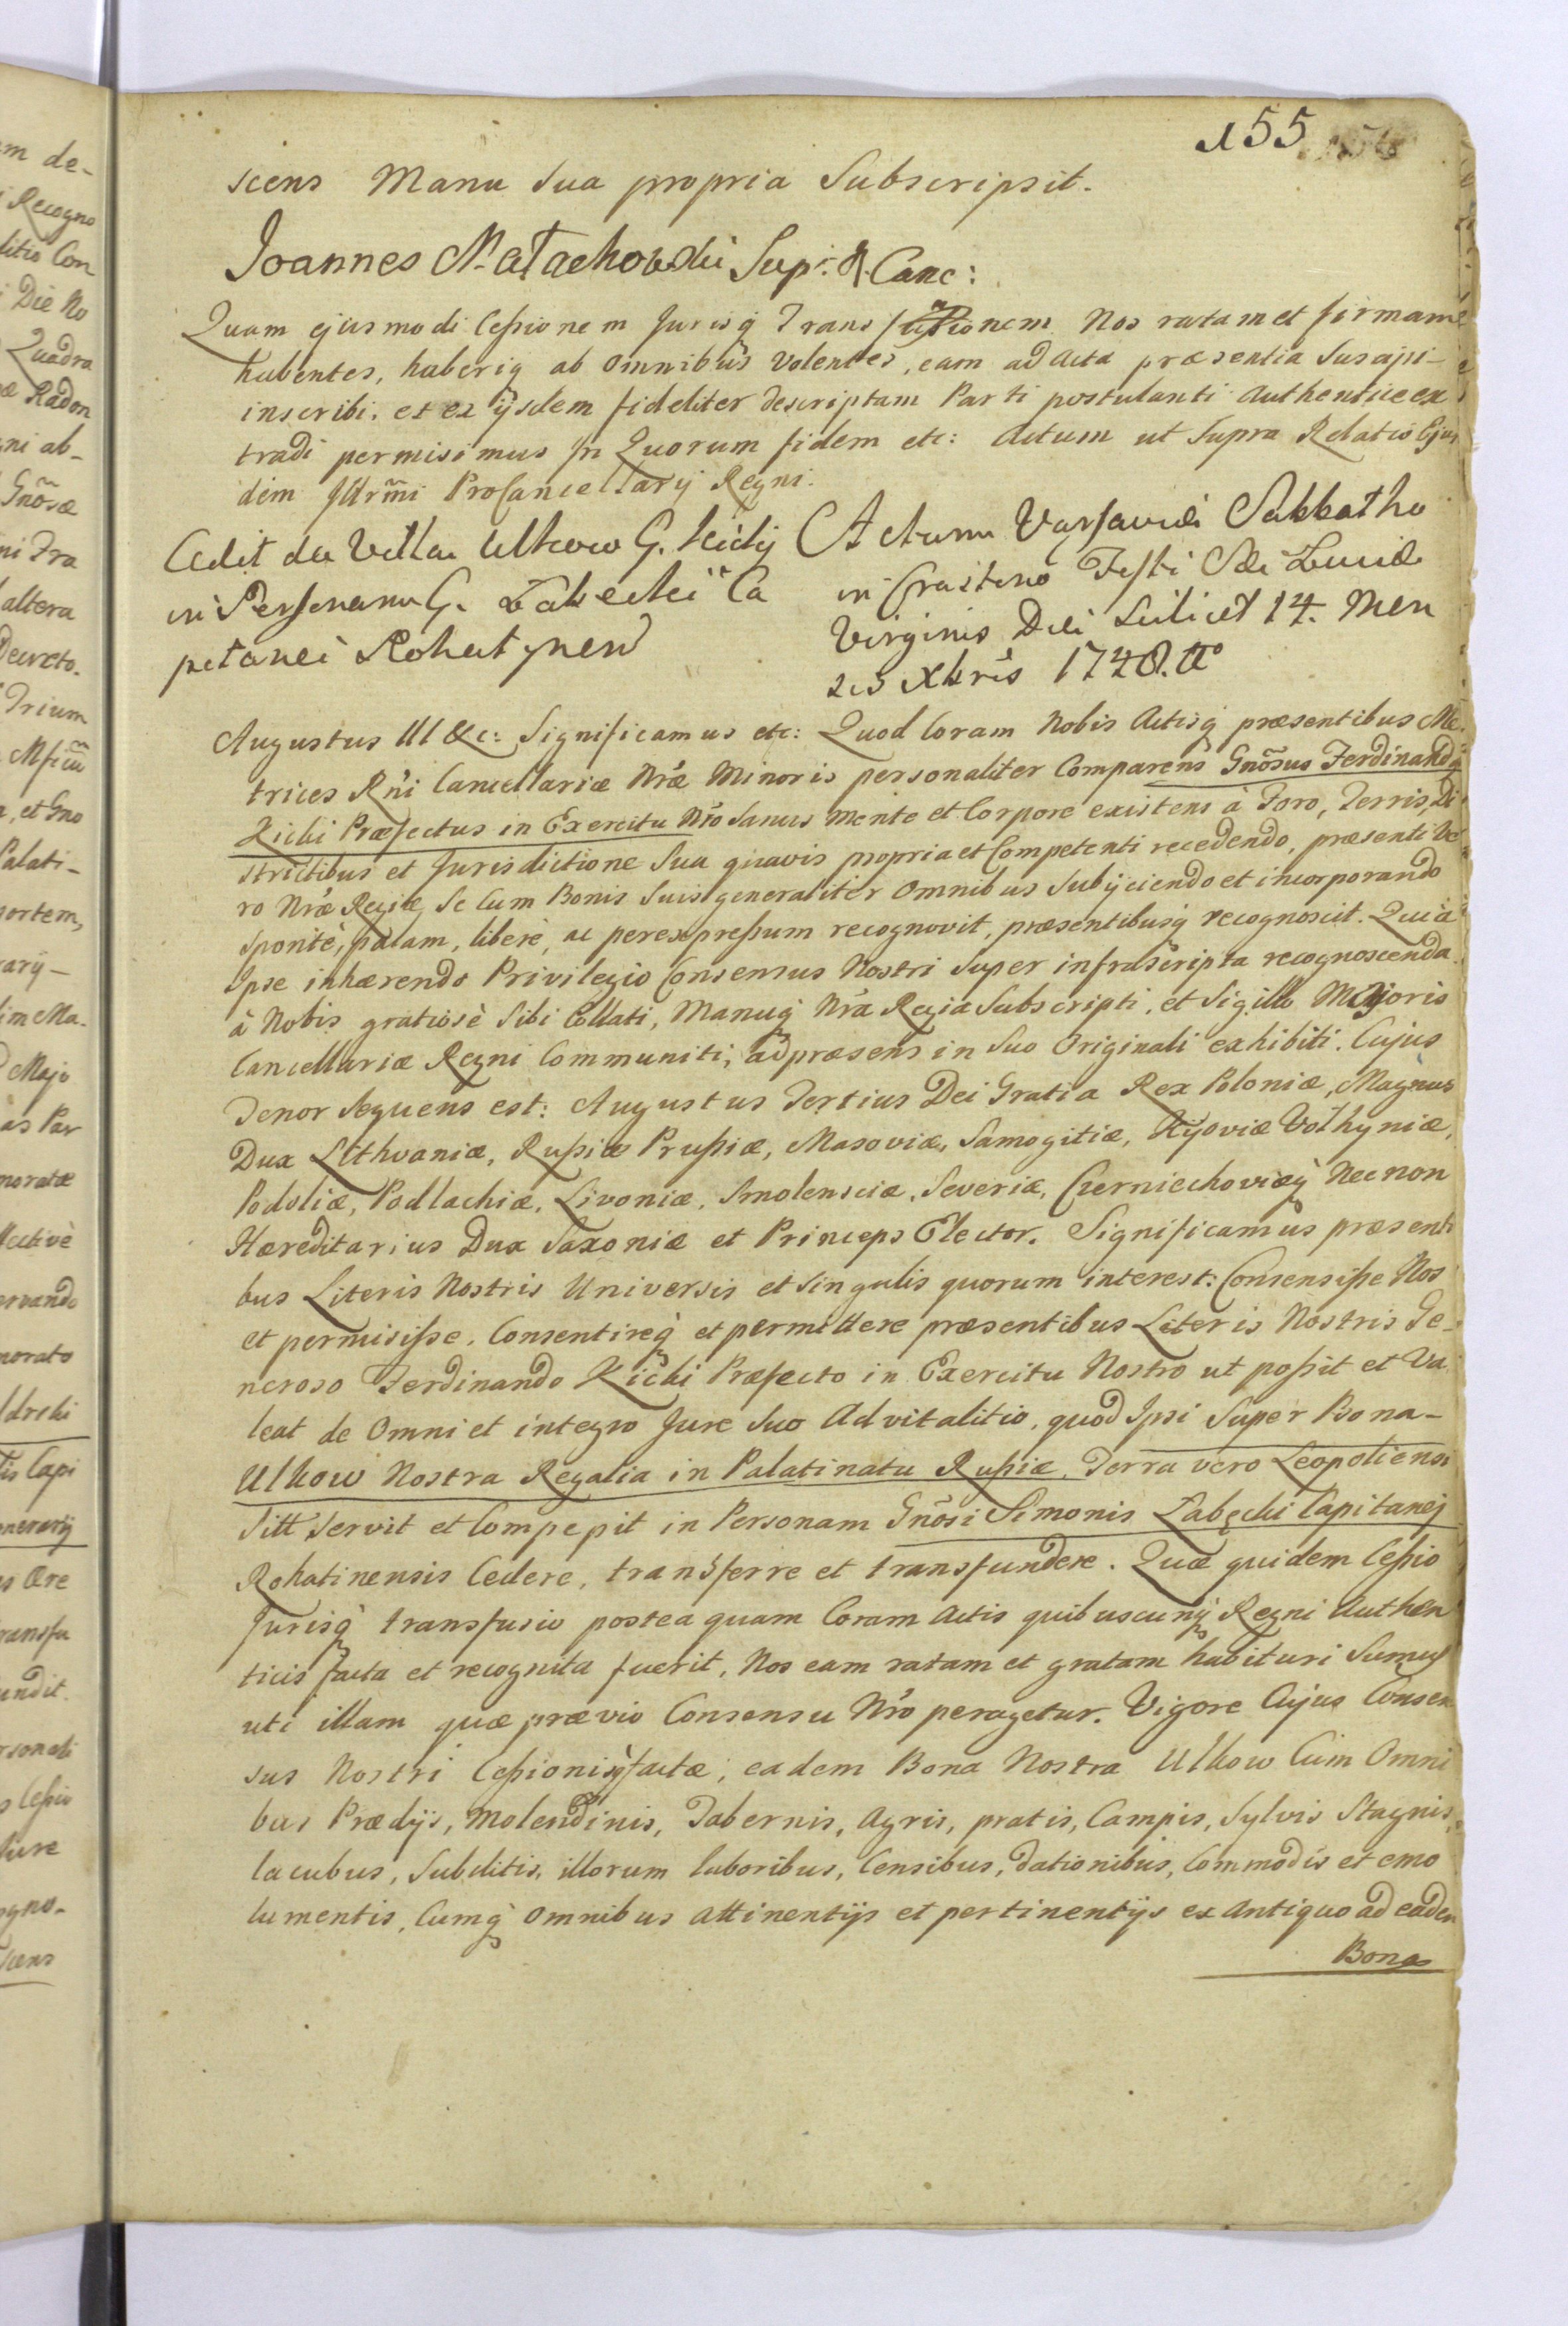 155
scens Manu sua propria Subscripsit.
Joannes Małachowski Sup: R. Canc:
Quam ejusmodi Cessionem Jurisq́ Transfusionem Nos ratam et firmam
habentes, haberiq́ ab omnibus volentes, eam ad Acta præsentia Suscipi
inscribi, et ex ijsdem fideliter descriptam Parti postulanti Authentice ex
tradi permisimus In Quorum fidem etc: Actum ut Supra Relatio Ejus
dem Illrm̃i ProCancellarij Regni.
Cedit de Villa Ulkow G. Kicki
in Personam G. Łabęcki Ca
pitanei Rohatynen
Actum Varsaviæ Sabbatho
in Crastino Festi S̃æ Luciæ
Virginis Diei Scilicet 14. Men
sis Xbris 1748. Aº
Augustus III &c: Significamus etc: Quod Coram Nobis Actisq́ præsentibus Me
trices Rñi Cancellariæ Nræ Minoris personaliter Comparens Gnõsus Ferdinandq
Kicki Præfectus in Exercitu Nrõ Sanus mente et Corpore existens à Foro, Terris, Di
strictibus et Jurisdictione Sua quavis propria et Competenti recedendo, præsenti Ve
ro Nræ Regiæ Se Cum Bonis Suis generaliter Omnibus Subijciendo et incorporando
Sponte, palam, liberè, ac per expressum recognovit, præsentibusq́ recognoscit. Quia
Ipse inhærendo Privilegio Consensus Nostri Super infrascripta recognoscenda
à Nobis gratiosè Sibi Collati, Manuq́ Nrã Regia Subscripti, et Sigillo Majoris
Cancellariæ Regni Communiti, ad præsens in Suo Originali exhibiti. Cujus
Tenor Sequens est: Augustus Tertius Dei Gratia Rex Poloniæ, Magnus
Dux Lithvaniæ, Russiæ Prussiæ, Masoviæ, Samogitiæ, Kijoviæ Volhyniæ,
Podoliæ, Podlachiæ, Livoniæ, Smolensciæ, Severiæ, Czerniechoviæq́ Necnon
Hæreditarius Dux Saxoniæ et Princeps Elector. Significamus præsenti
bus Literis Nostris Universis et Singulis quorum interest: Consensisse Nos
et permisisse, Consentireq́ et permittere præsentibus Literis Nostris Ge-
neroso Ferdinando Kicki Præfecto in Exercitu Nostro ut possit et Va
leat de Omni et integro Jure Suo Advitalitio, quod Ipsi Super Bona-
Ulkow Nostra Regalia in Palatinatu Russiæ, Terra vero Leopoliensi
Sitt Servit et Compepit in Personam Gnõsi Simonis Łabęcki Capitanej
Rohatinensis Cedere, transferre et transfundere. Quæ quidem Cessio
Jurisq́ transfusio postea quam Coram Actis quibuscunq́ Regni Authen
ticis facta et recognita fuerit, Nos eam ratam et gratam habituri Sumus
uti illam quæ prævio Consensu Nrõ peragetur. Vigore Cujus Consen
sus Nostri Cessionisq́ factæ, eadem Bona Nostra Ulkow Cum Omni
bus Prædijs, Molendinis, Tabernis, Agris, pratis, Campis, Sylvis Stagnis,
lacubus, Subditis, illorum laboribus, Censibus, dationibus, Commodis et emo
lumentis, Cumq́ omnibus attinentijs et pertinentijs ex Antiquo ad eadem
Bona